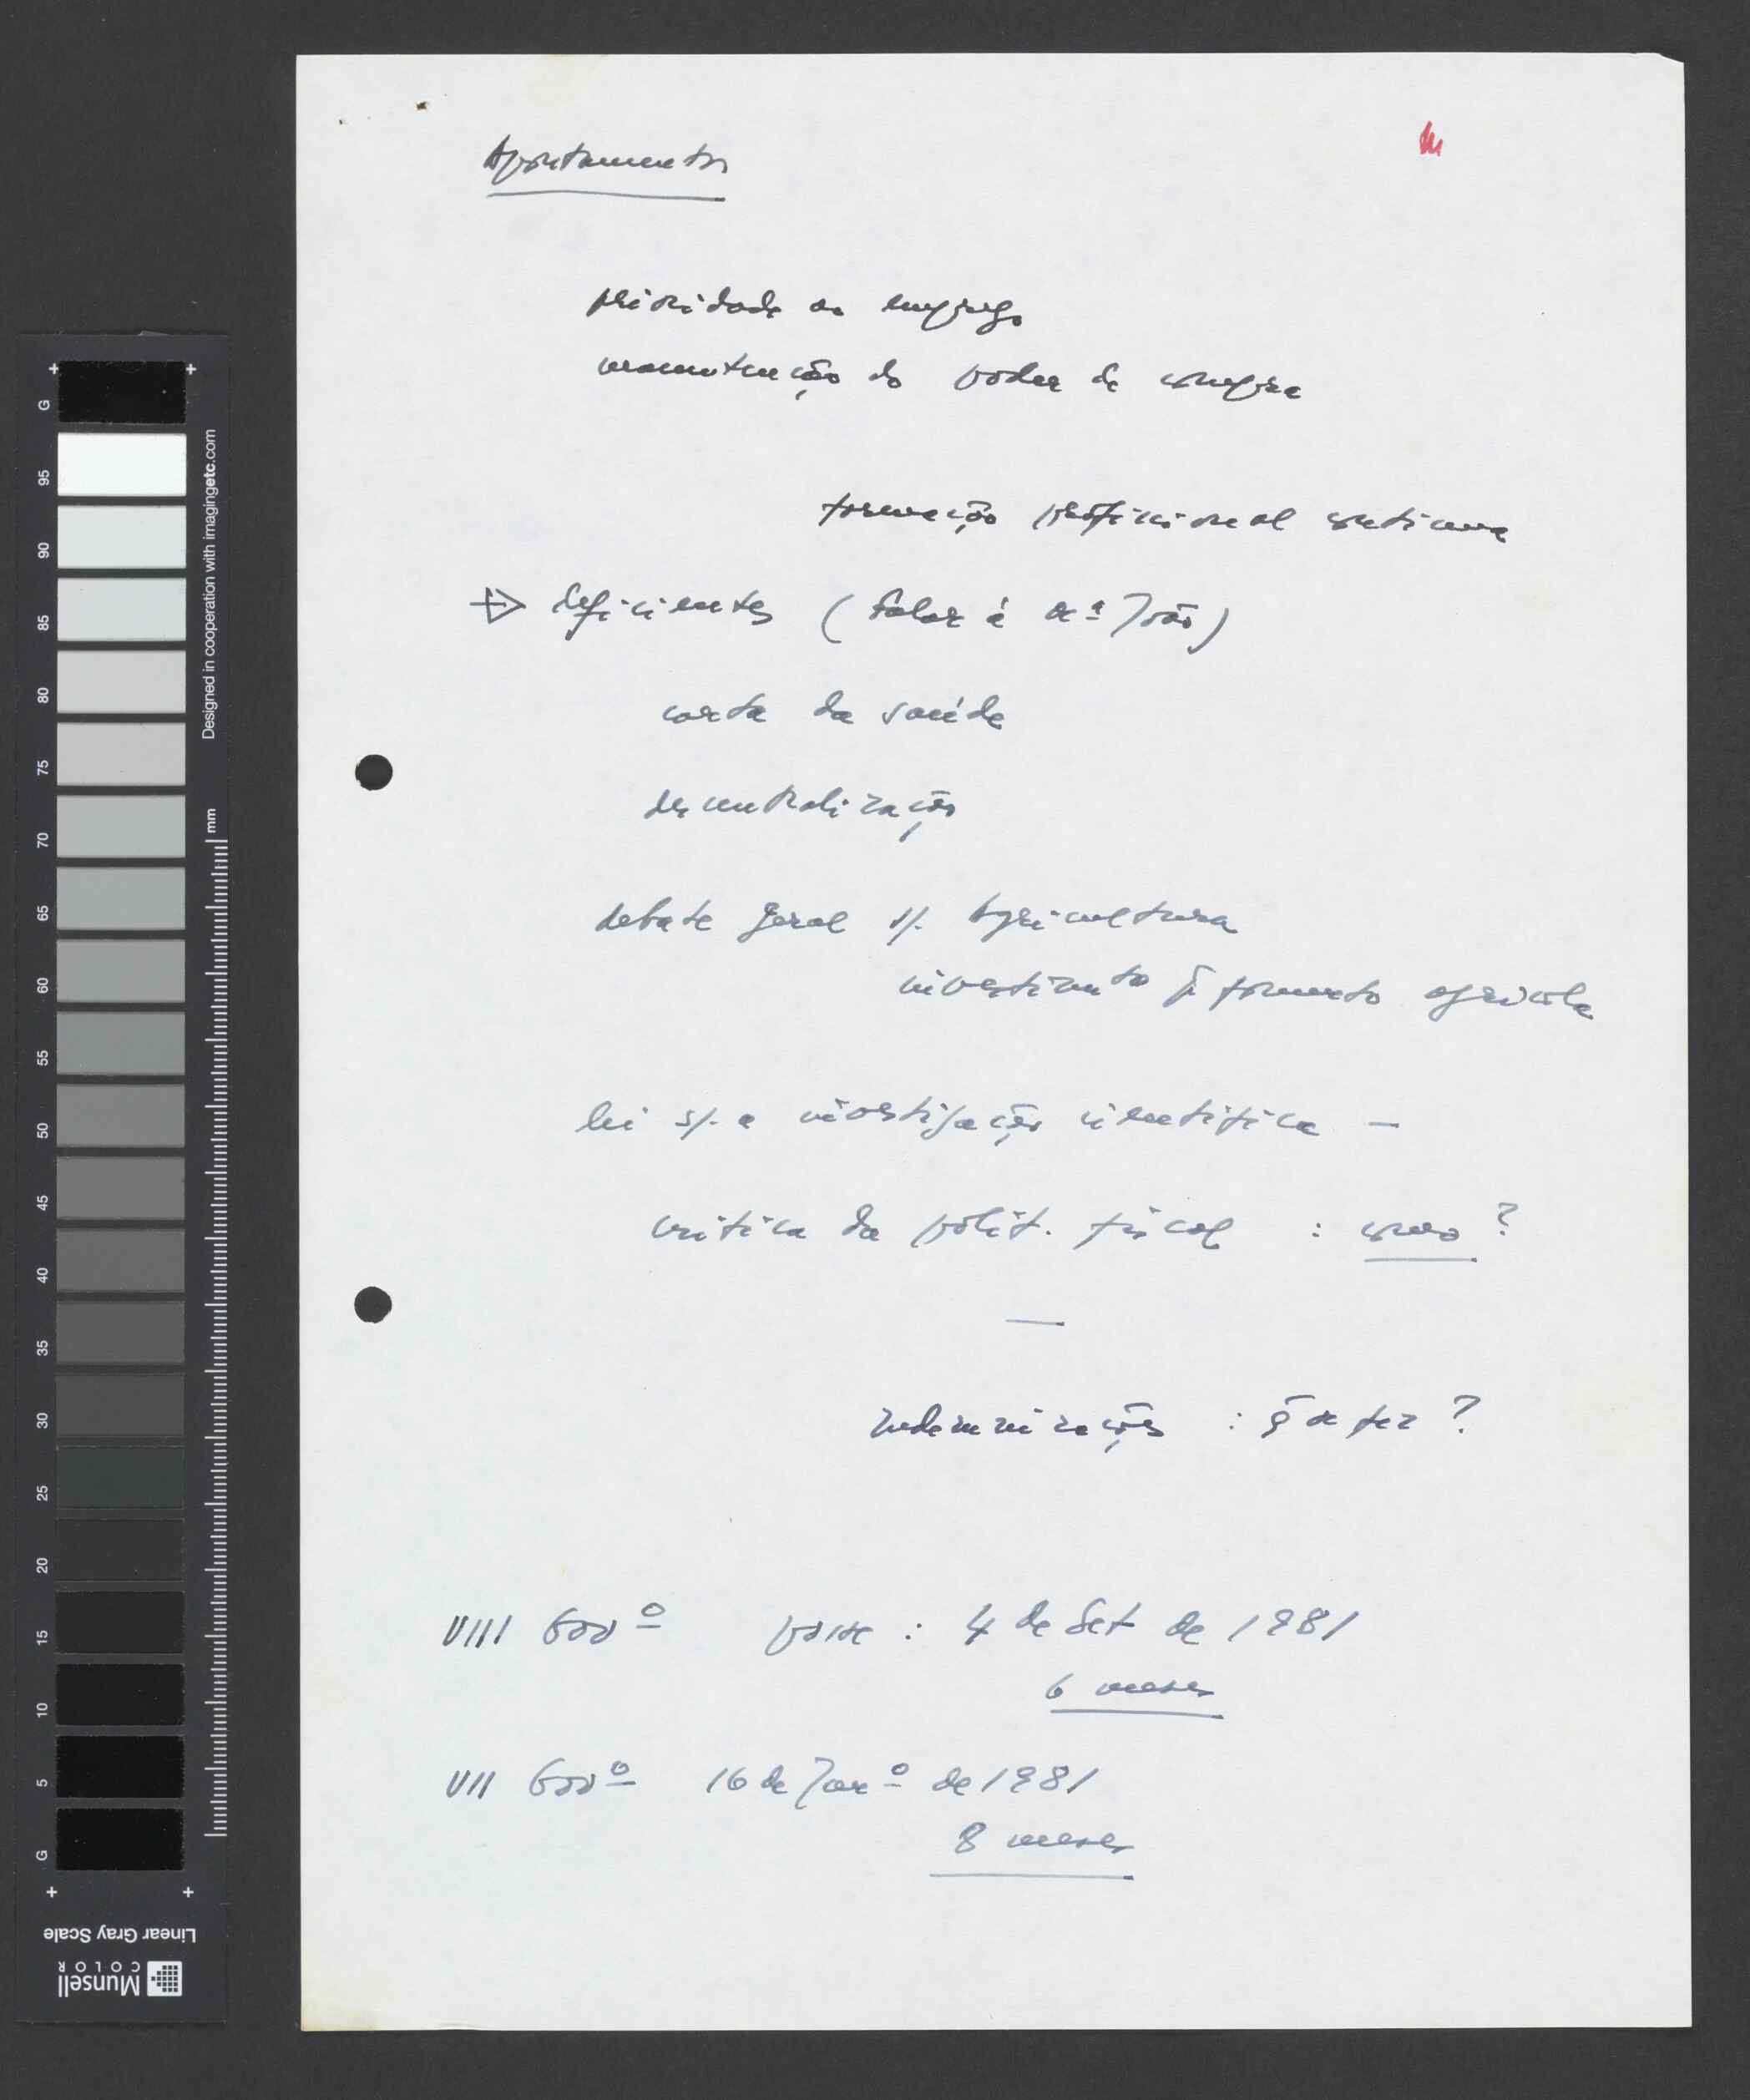 Apontamentos
prioridade ao emprego
manutenção do poder de compra
formação profissional contínua
deficientes (falar à Mª João)
carta da saúde
descentralização
debate geral s/. Agricultura
investimento fomento agrícola
lei s/. a investigação científica —
critica da polit. fiscal : como ?
—
indemnizações : q̃ se fez ?
VIII Govº posse : 4 de Set de 1981
6 meses
VII Govº 16 de Janº de 1981
8 meses
G
95
90
85
80
75
70
65
60
55
50
45
40
35
30
25
20
15
10
5
G
Designed in cooperation with imagingetc.com
mm
Linear Gray Scale
Munsell
COLOR